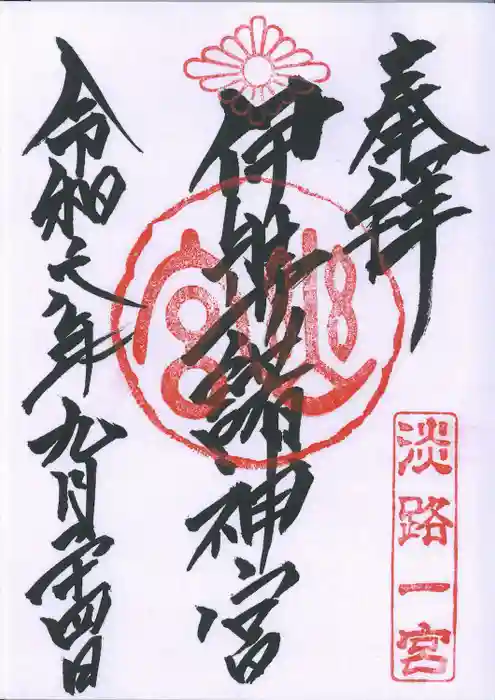 奉拝
淡路一宮
伊弉諾神宮
令和元年九月二十四日